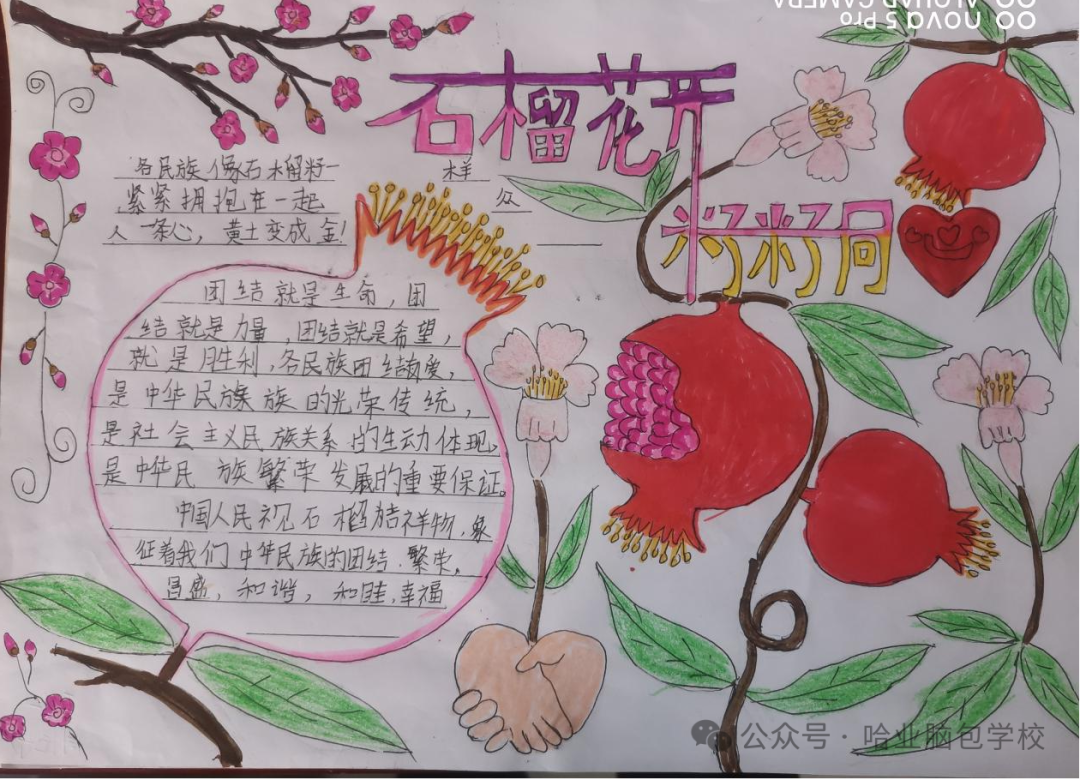 石榴花开
籽籽同
各民族像石榴籽一样
紧紧拥抱在一起 众
人一条心，黄土变成金！
团结就是生命，团
结就是力量，团结就是希望，
就是胜利，各民族团结友爱，
是中华民族族的光荣传统，
是社会主义民族关系的生动体现。
是中华民族繁荣发展的重要保证。
中国人民视石榴为吉祥物，象
征着我们中华民族的团结、繁荣。
昌盛，和谐，和睦，幸福
公众号·哈业脑包学校
nova 5 Pro
AI QUAD CAMERA